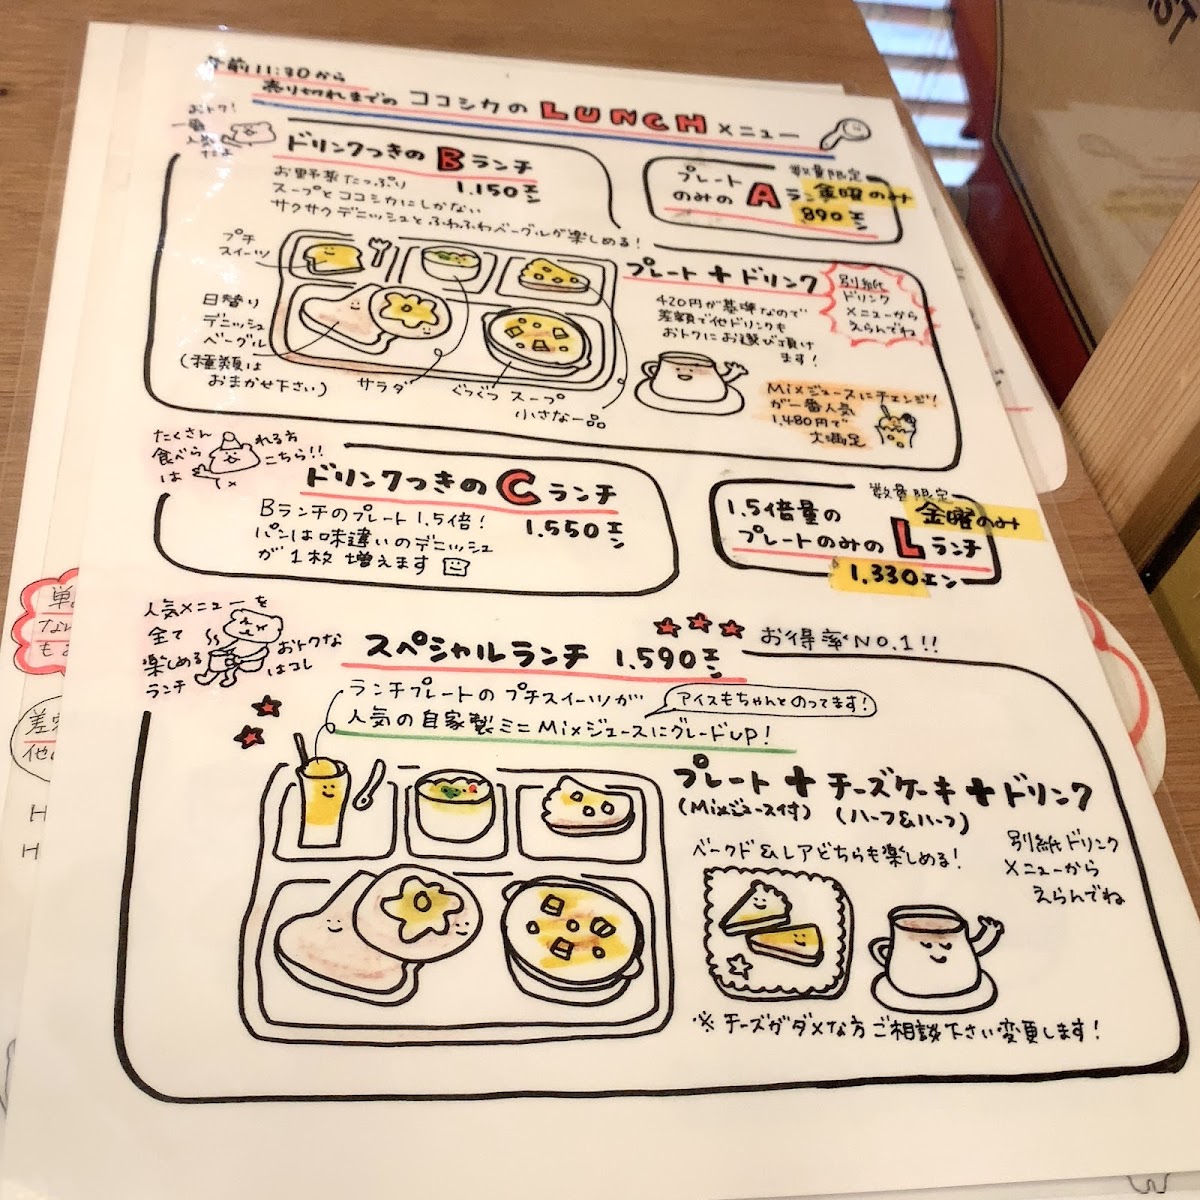 午前11:30から
売り切れまでの ココシカの LUNCH メニュー
おトク!
一番
人気
だよ
ドリンクつきの Bランチ
1.150エン
お野菜たっぷり
スープとココシカにしかない
サクサクデニッシュとふわふわベーグルが楽しめる!
数量限定
プレート
のみの Aランチ
金曜のみ
890エン
プチ
スイーツ
日替り
デニッシュ
ベーグル
(種類は
おまかせ下さい)
サラダ
ぐつぐつ スープ
小さな一品
プレート+ドリンク
420円が基準なので
差額で他ドリンクも
おトクにお選び頂け
ます!
別紙
ドリンク
メニューから
えらんでね
Mixジュースにチェンジ!
が一番人気
1,480円で
大満足
たくさん
食べら
れる方
は こちら!!
ドリンクつきの Cランチ
1.550エン
Bランチのプレート1.5倍!
パンは味違いのデニッシュ
が1枚 増えます
数量限定
金曜のみ
1.5倍量の
プレートのみの Lランチ
1,330エン
人気メニューを
全て
楽しめる
ランチ
おトクな
はコレ
スペシャルランチ 1.590エン
お得率NO.1!!
ランチプレートの プチスイーツが
アイスもちゃんとのってます!
人気の自家製ミニMixジュースにグレードUP!
プレート+チーズケーキ+ドリンク
(Mixジュース付) (ハーフ&ハーフ)
ベークド&レアどちらも楽しめる!
別紙ドリンク
メニューから
えらんでね
※チーズがダメな方ご相談下さい変更します!